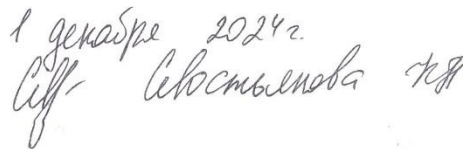 1 декабря 2024г.
Севостьянова